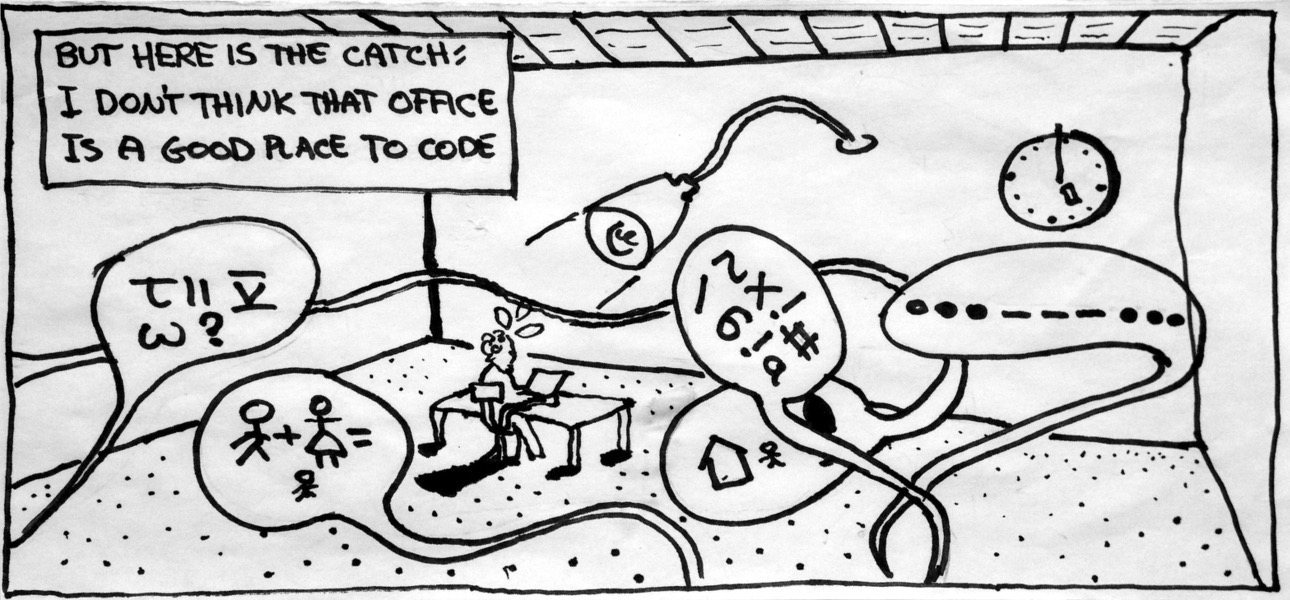 BUT HERE IS THE CATCH:
I DON'T THINK THAT OFFICE
IS A GOOD PLACE TO CODE